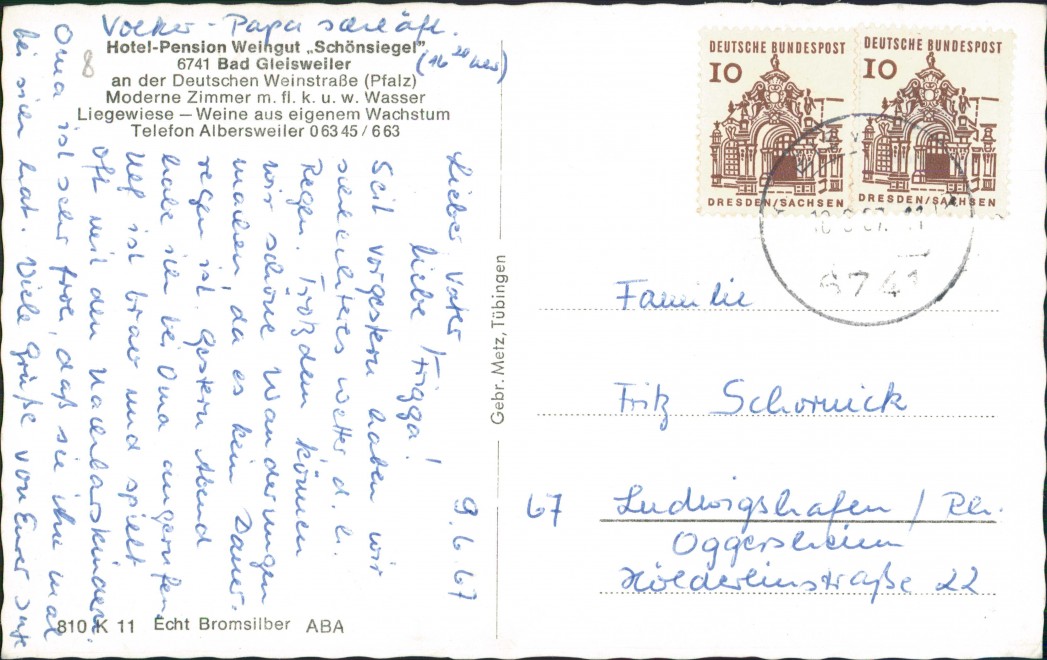 Volker - Papa schläft.
(16 20 Uhr)
Hotel-Pension Weingut „Schönsiegel"
6741 Bad Gleisweiler
an der Deutschen Weinstraße (Pfalz)
Moderne Zimmer m. fl. k. u. w. Wasser
Liegewiese — Weine aus eigenem Wachstum
Telefon Albersweiler 0 63 45 / 6 63
8
9.6.67
Lieber Vater
liebe Frigga!
Seit vorgestern haben wir
schlechteres Wetter, d. h.
Regen. Trotzdem können
wir schöne Wanderungen
machen, da es kein Dauer-
regen ist. Gestern Abend
habe ich bei Oma angerufen.
Ulf ist brav und spielt
oft mit den Nachbarskindern.
Oma ist sehr froh, daß sie ihn mal
bei sich hat. Viele Grüße von Eurer
810 K 11 Echt Bromsilber ABA
Gebr. Metz, Tübingen
DEUTSCHE BUNDESPOST
10
DRESDEN/SACHSEN
DEUTSCHE BUNDESPOST
10
DRESDEN/SACHSEN
6741
Familie
Fritz Schornick
67 Ludwigshafen / Rh.
Oggersheim
Hölderlinstraße 22